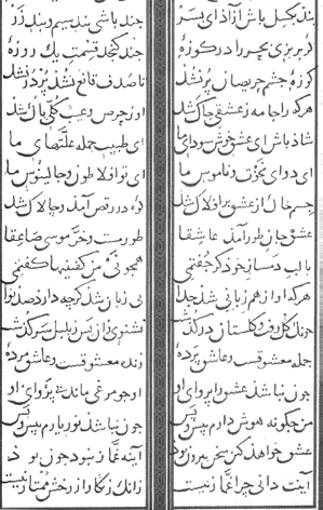 بند بکسل باش آزاذ ای بسر جند باشی بند سیم و بند زر
کر بریزی بحر را در کوزهٔ جند کنجد قسمت یک روزهٔ
کوزهٔ جشم حریصان پر نشذ تا صدف قانع نشذ پر در نشذ
هرکه را جامه ز عشقی جاک شذ او ز حرص و عیب کلی پاک شذ
شاذ باش ای عشق خوش سودای ما ای طبیب جمله علتهای ما
ای دوای نخوت و ناموس ما ای تو افلاطون و جالینوس ما
جسم خاک از عشق بر افلاک شذ کوه در رقص آمذ و جالاک شذ
عشق جان طور آمذ عاشقا طور مست و خر موسی صاعقا
با لب دمساز خود کر جفتمی همجو نی من کفتنیها کفتمی
هرکه او از هم زبانی شذ جدا بی زبان شذ کرجه دارد صذ نوا
جونک کل رفت و کلستان درکذشت نشنوی زان پس ز بلبل سرکذشت
جمله معشوقست و عاشق پردهٔ زنده معشوقست و عاشق مردهٔ
جون نباشذ عشق را پروای او او جو مرغی ماند بی پر وای او
من جکونه هوش دارم پیش و پس جون نباشذ نور یارم پیش و پس
عشق خواهذ کین سخن بیرون بوذ آینه غماز نبوذ جون بوذ
آینت دانی جرا غماز نیست زانک زنکار از رخش ممتاز نیست